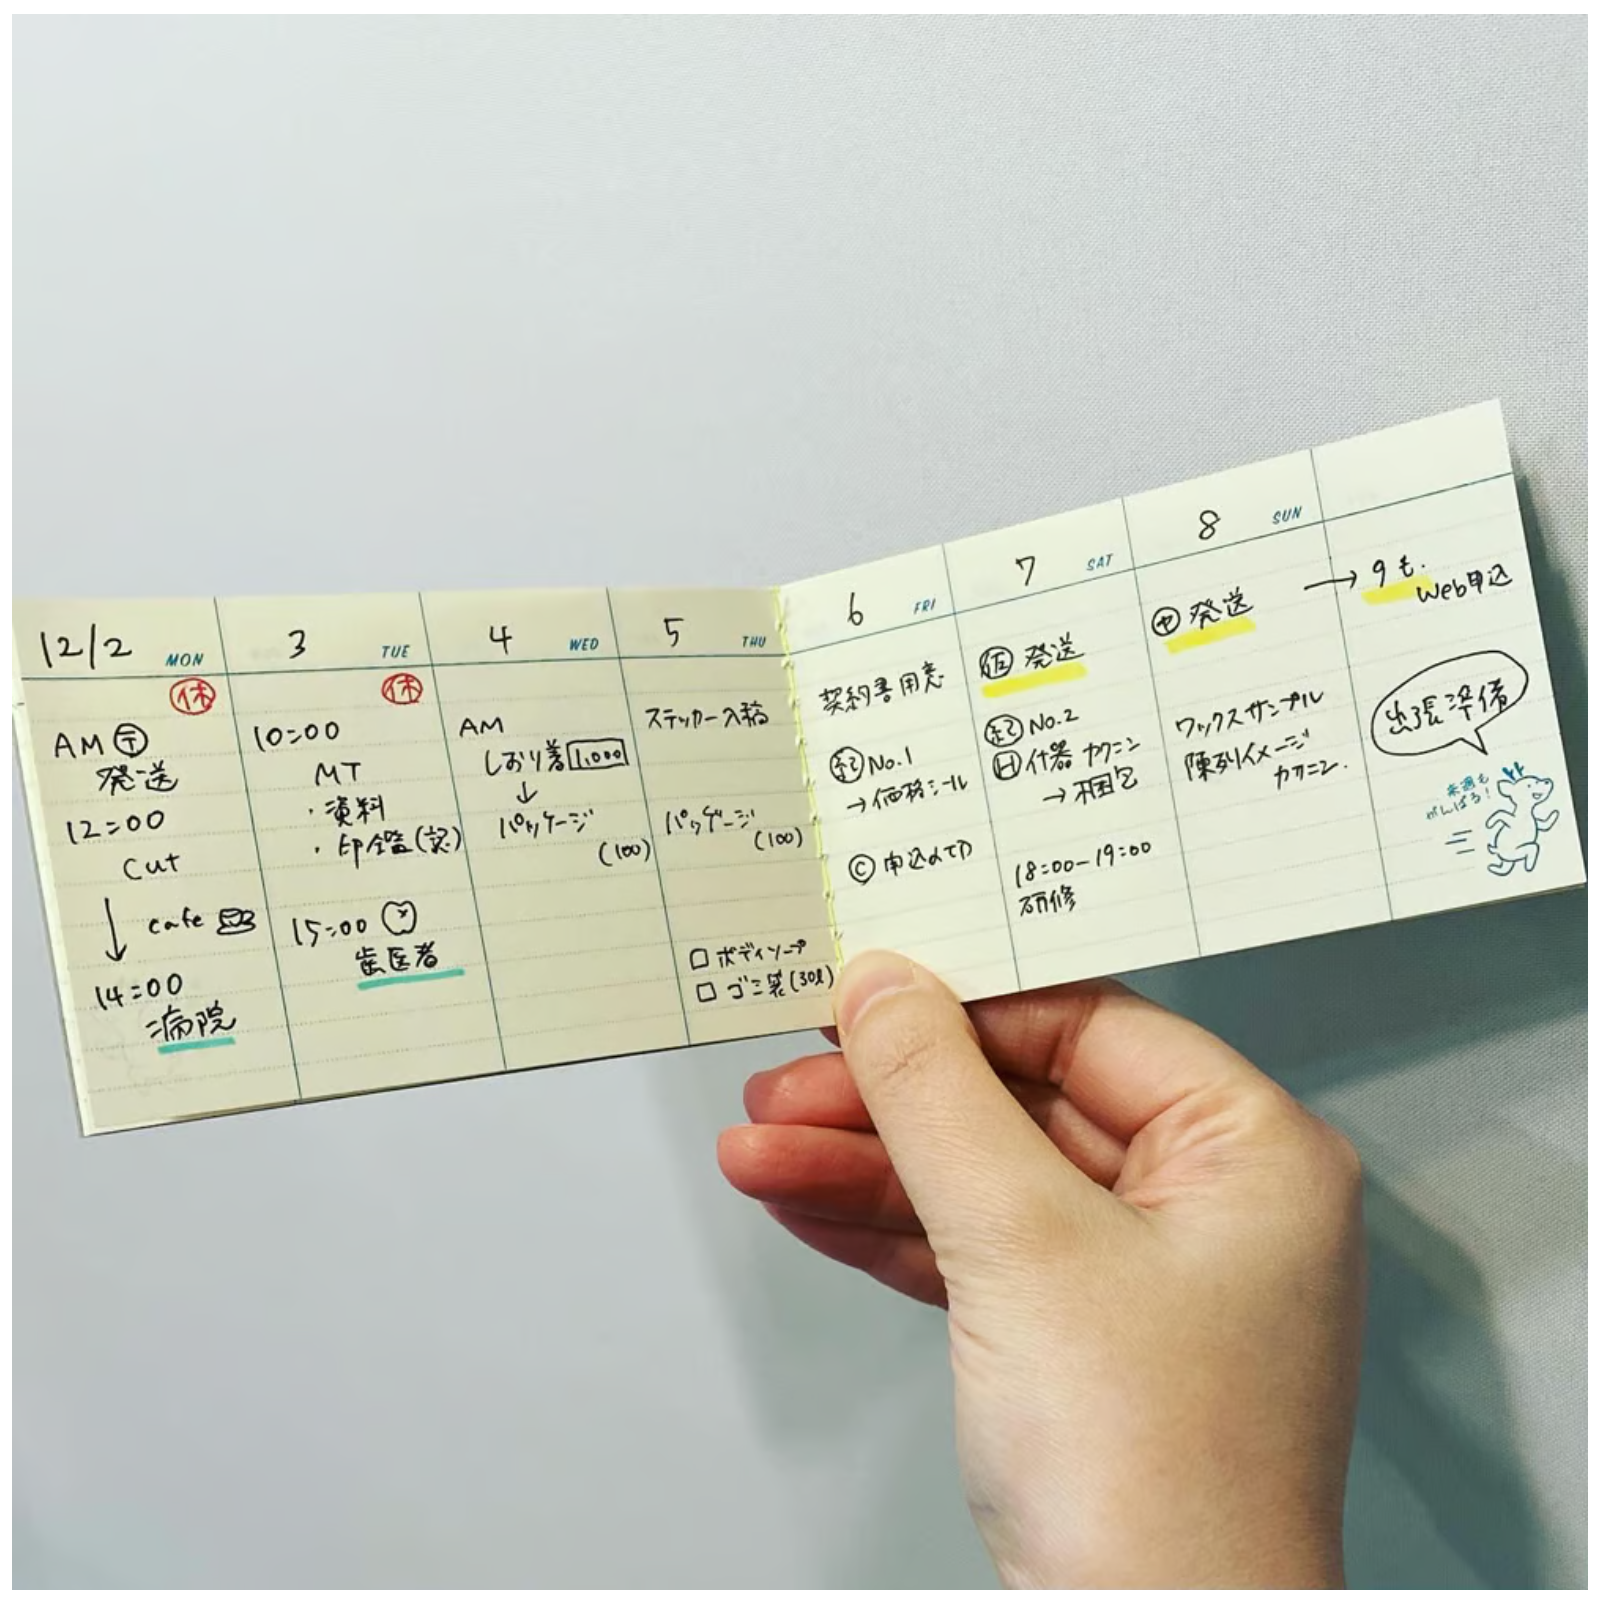 12/2 MON
休
AM 〒
発送
12:00
cut
cafe
14:00
病院
3 TUE
休
10:00
MT
・資料
・印鑑(認)
15:00
歯医者
4 WED
AM
しおり着 1,000
↓
パッケージ
(100)
5 THU
ステッカー入稿
パッケージ
(100)
□ ボディソープ
□ ゴミ袋(30ℓ)
6 FRI
契約書用意
No.1
→価格シール
Ⓒ 申込〆切
7 SAT
仮 発送
No.2
Ⓗ什器 カクニン
→梱包
18:00-19:00
研修
8 SUN
発送
ワックスサンプル
陳列イメージ
カクニン.
→ 9も.
Web申込
出張準備
来週も
がんばろ!